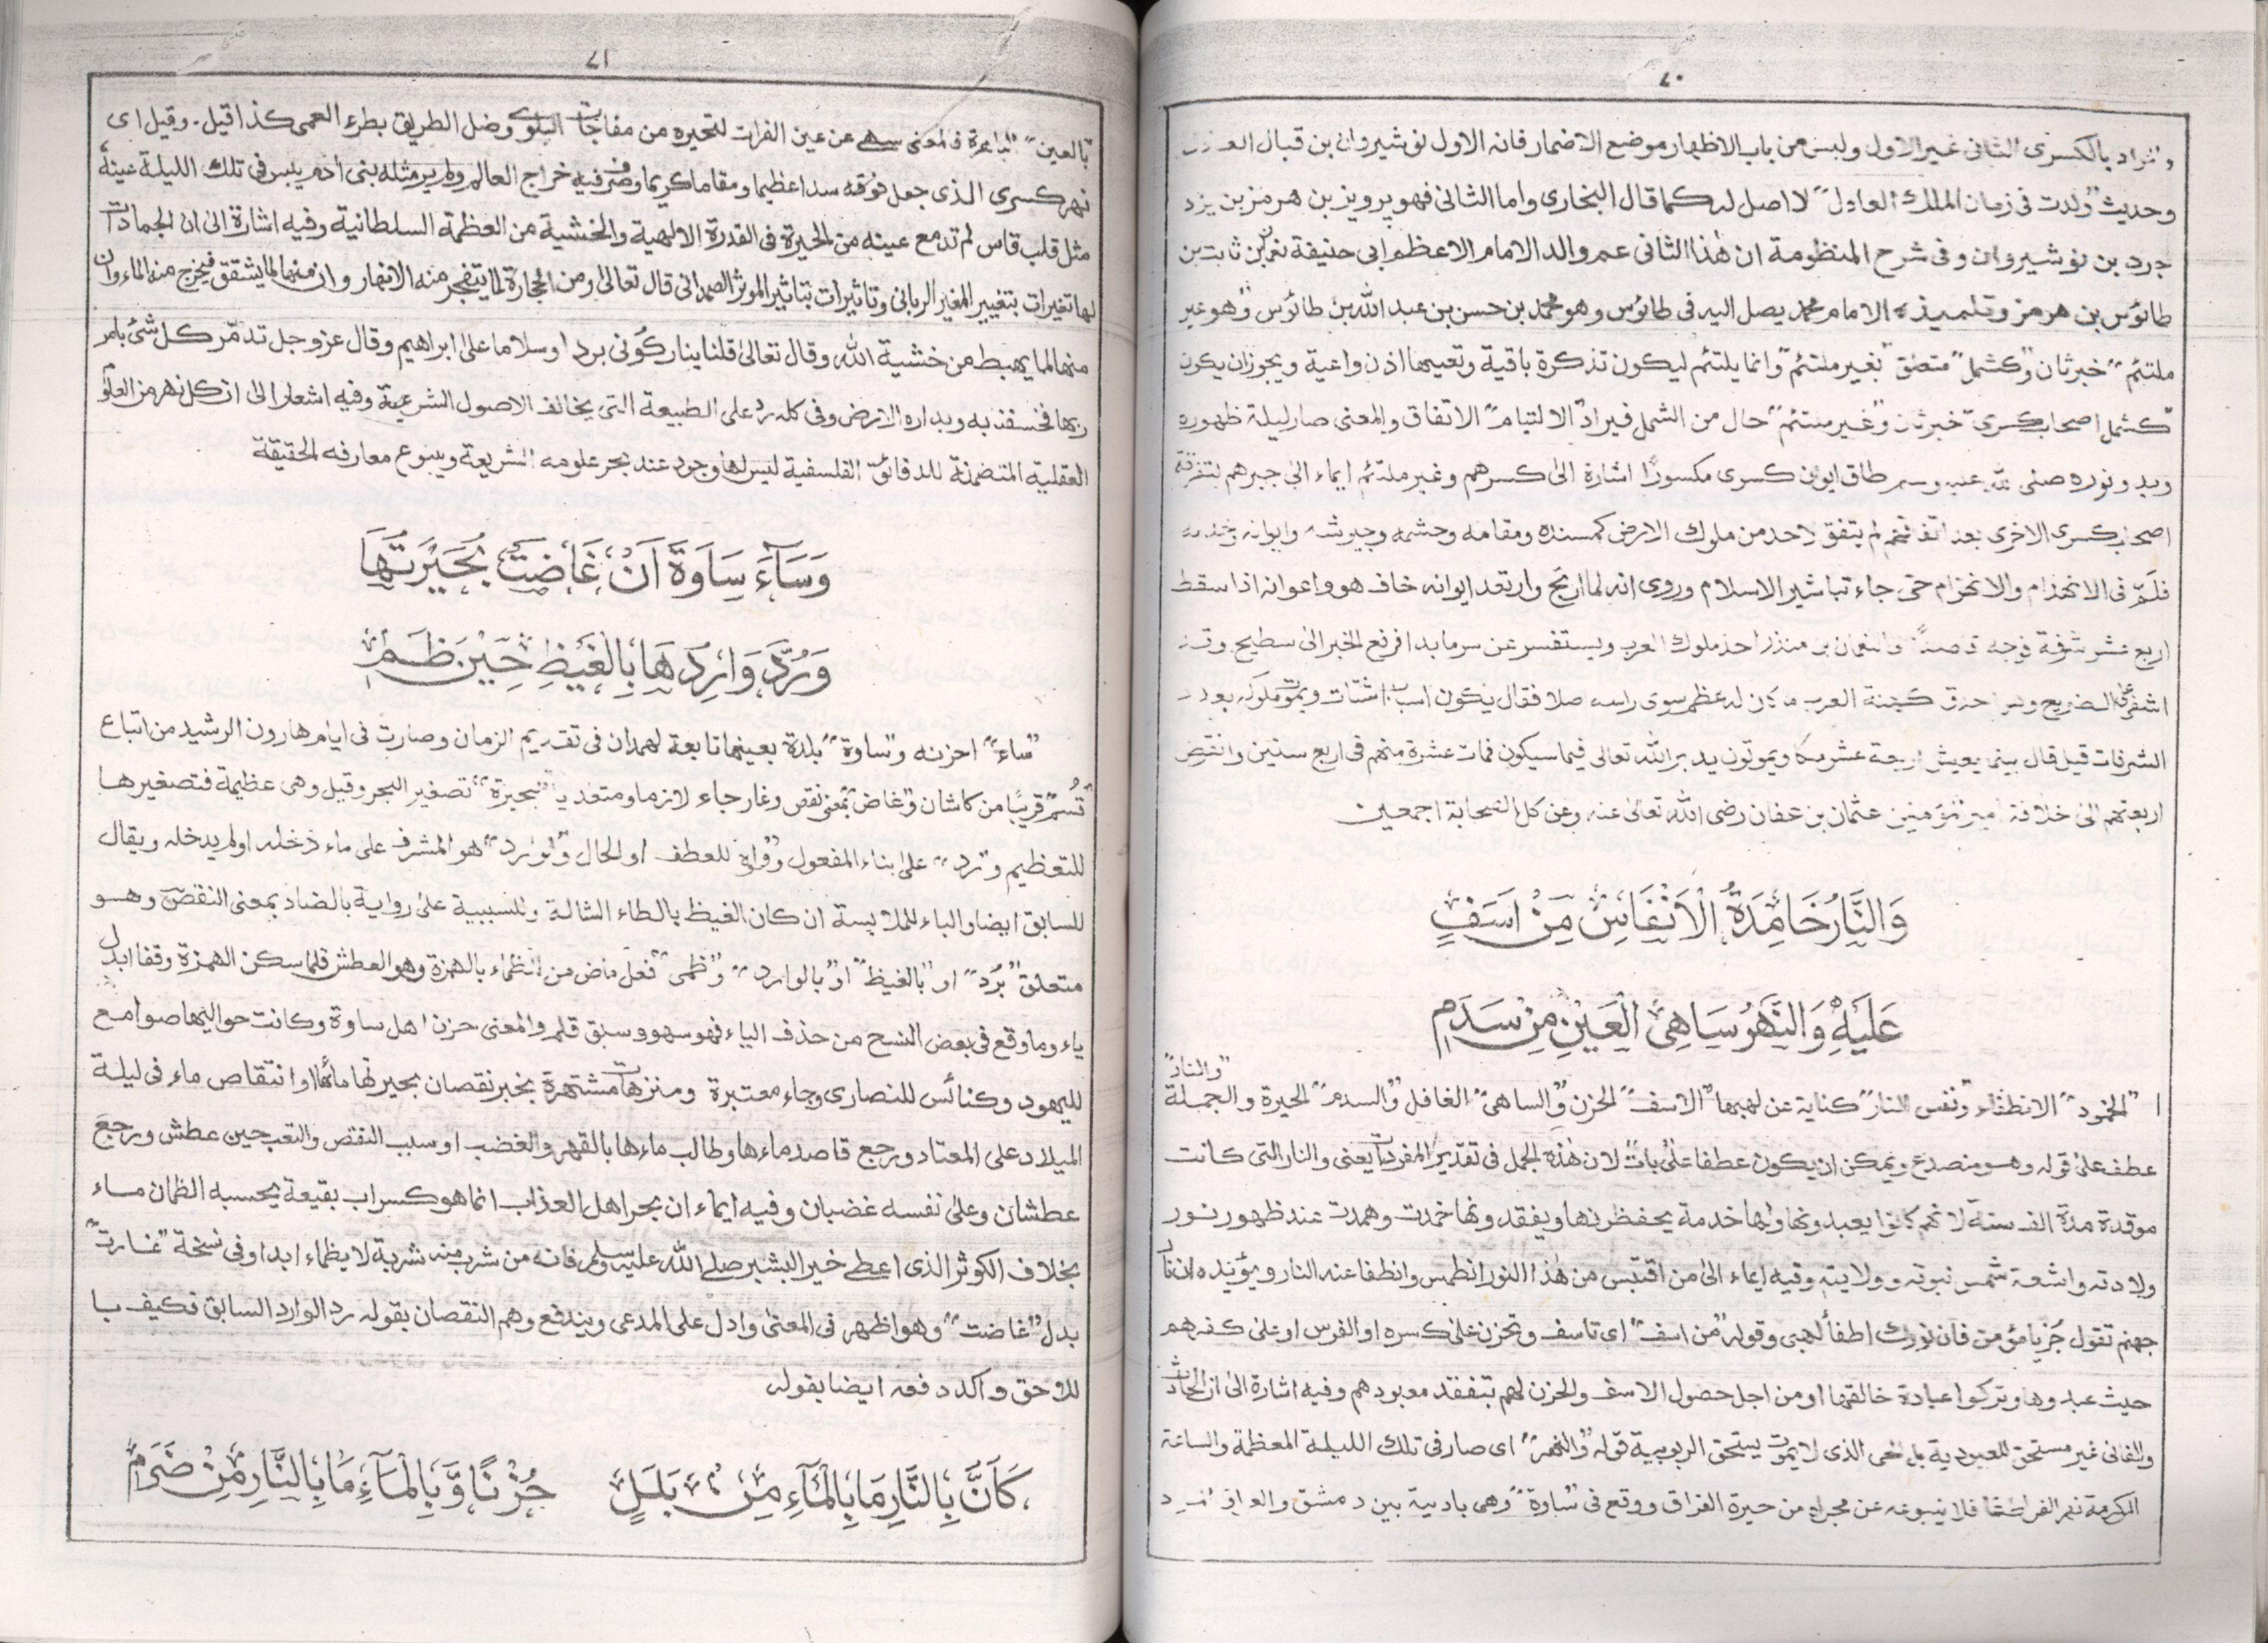 ٧٠
والمراد بالكسرى الثانى غير الاول وليس من باب الاظهار موضع الاضمار فانه الاول نوشيروان بن قبال
وحديث "ولدت فى زمان الملك العادل" لا اصل له كما قال البخارى واما الثانى فهو پرويز بن هرمز بن يزد
جرد بن نوشيروان وفى شرح المنظومة ان هذا الثانى عم والد الامام الاعظم ابى حنيفة نعمان بن ثابت بن
طائوس بن هرمز وتلميذه الامام محمد يصل اليه فى طائوس وهو محمد بن حسن بن عبد الله بن طائوس "وهو غير
ملتئم" خبر ثان و"كشمل" متعلق "بغير ملتئم" وانما يلتئم ليكون تذكرة باقية وتعيها اذن واعية ويجوز ان يكون
"كشمل اصحاب كسرى" خبر ثان و"غير ملتئم" حال من الشمل فيراد "الالتيام" الاتفاق والمعنى صار ليلة ظهوره
وبدو نوره صلى الله عليه وسلم طاق ايوان كسرى مكسورًا اشارة الى كسرهم وغير ملتئم ايماء الى جبرهم لتفرقة
اصحاب كسرى الاخرى بعد اتفاقهم لم يتفق لاحد من ملوك الارض كمسنده ومقامه وحشمه وجيرشه وايوانه
فلمّ فى الانهدام والانهزام حتى جاء تباشير الاسلام وروى انه لما ارتج وارتعد ايوانه خاف هو واعوانه اذا سقط
اربع عشر شرفة فوجه قاصدًا والنعمان بن منذر احد ملوك العرب ويستفسر عن سر ما بدا فرفع الخبر الى سطيح
اشفى على الضريح ولم كهنة العرب ما كان له عظم سوى راسه فقال يكون اسباب اشتات ويموت ملوك بعدد
الشرفات قيل قال بينما يعيش اربعة عشر ملكا ويموتون يدبر الله تعالى فيما سيكون فمات عشرة منهم فى اربع سنين وانقرض
اربعتهم الى خلافة امير المؤمنين عثمان بن عفان رضى الله تعالى عنه وعن كل الصحابة اجمعين
وَالنَّارُ خَامِدَةُ الْاَنْفَاسِ مِنْ اَسَفٍ
عَلَيْهِ وَالنَّهْرُ سَاهِى الْعَيْنِ مِنْ سَدَمٍ
"والنار"
"الخمود" الانطفاء و"نفس النار" كناية عن لهبها "الاسف" الحزن و"الساهى" الغافل و"السدم" الحيرة والجملة
عطف على قوله وهو منصدع ويمكن ان يكون عطفا على بات لان هذه الجمل فى تقدير المفردات يعنى والنار التى كانت
موقدة مدة الف سنة لانهم كانوا يعبدونها ولها خدمة يحفظونها ويفقدونها خمدت وهمدت عند ظهور نور
ولادته واشعة شمس نبوته وولايته وفيه ايماء الى من اقتبس من هذا النور انطمس وانطفا عنه النار ويؤيده ان نار
جهنم تقول جُز يا مؤمن فان نورك اطفأ لهبى وقوله "من اسف" اى تاسف وتحزن على كسره او الفرس او على كفهم
حيث عبدوها وتركوا عبادة خالقها او من اجل حصول الاسف والحزن لهم بتفقد معبودهم وفيه اشارة الى ان الحادث
والفانى غير مستحق للعبودية بل الحى الذى لا يموت يستحق الربوبية قوله "والنهر" اى صار فى تلك الليلة المعظمة والساعة
المكرمة نهر الفرات فلا ينبوعه عن مجراه من حيرة الفراق ووقع فى "ساوة" وهى بادية بين دمشق والعراق
٧١
"بالعين" الباصرة فالمعنى سهى عن عين الفرات لتحيره من مفاجات البلوى وضل الطريق بطرء العمى كذا قيل. وقيل اى
نهر كسرى الذى جعل فوقه سدا عظيما ومقاما كريما وصرف فيه خراج العالم ولم ير مثله بنى آدم يبس فى تلك الليلة عينه
مثل قلب قاس لم تدمع عينه من الحيرة فى القدرة الالهية والخشية من العظمة السلطانية وفيه اشارة الى ان الجمادات
لها تغيرات بتغيير المغير الربانى وتاثيرات بتاثير الموثر الصمدانى قال تعالى ومن الحجارة لما يتفجر منه الانهار وان منها لما يشقق فيخرج منه الماء وان
منها لما يهبط من خشية الله وقال تعالى قلنا يا نار كونى بردا وسلاما على ابراهيم وقال عز وجل تدمّر كل شئ بامر
ربها فخسفنا به وبداره الارض وفى كله رد على الطبيعة التى يخالف الاصول الشرعية وفيه اشعار الى ان كل نهر من العلوم
العقلية المتضمنة للدقائق الفلسفية ليس لها وجود عند بحر علومه الشريعة وينبوع معارفه الحقيقة
وَسَآءَ سَاوَةَ اَنْ غَاضَتْ بُحَيْرَتُهَا
وَرُدَّ وَارِدُهَا بِالْغَيْظِ حِيْنَ ظَمِ
"ساء" احزنه و"ساوة" بلدة بعينها تابعة لهمدان فى تقديم الزمان وصارت فى ايام هارون الرشيد من اتباع
"قُم" قريبًا من كاشان و"غاض" بمعنى نقص وغار جاء لازما ومتعديا "بحيرة" تصغير البحر وقيل وهى عظيمة فتصغيرها
للتعظيم و"رد" على بناء المفعول و"واو" للعطف او الحال و"الوارد" هو المشرف على ماء دخله او لم يدخله ويقال
للسابق ايضا والباء للملابسة ان كان الغيظ بالطاء الشالة وللسببية على رواية بالضاد بمعنى النقص وهو
متعلق "برُد" او "بالغيظ" او "بالوارد" و"ظمى" فعل ماض من الظماء بالهمزة وهو العطش فلما سكن الهمزة وقفا ابدل
ياء وما وقع فى بعض النسخ من حذف الياء فهو سهو وسبق قلم والمعنى حزن اهل ساوة وكانت حواليها صوامع
لليهود وكنائس للنصارى وجاء معتبرة ومنزهات مشتهرة بخبر نقصان بحيرتها مائها او انتقاص ماء فى ليلة
الميلاد على المعتاد ورجع قاصد ماءها وطالب ماءها بالقهر والغضب او سبب النقص والتعب حين عطش ورجع
عطشان وعلى نفسه غضبان وفيه ايماء ان بحر اهل العذاب انما هو كسراب بقيعة يحسبه الظمان ماء
بخلاف الكوثر الذى اعطى خير البشير صلى الله عليه وسلم فانه من شرب منه شربة لا يظماء ابدا وفى نسخة "غارت"
بدل "غاضت" وهو اظهر فى المعنى وادل على المدعى ويندفع وهم النقصان بقوله رد الوارد السابق فكيف با
للاحق واكد دفعه ايضا بقوله
كَاَنَّ بِالنَّارِ مَا بِالْمَآءِ مِنْ بَلَلٍ حُزْنًا وَّبِالْمَآءِ مَا بِالنَّارِ مِنْ ضَرَمٍ